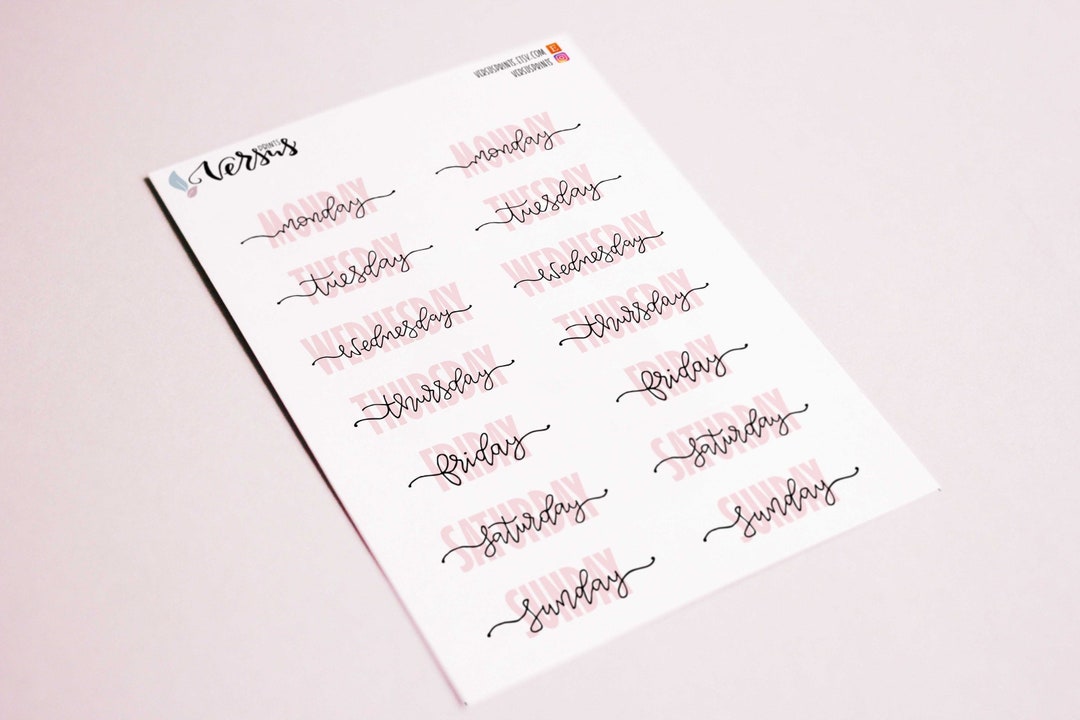 VERSUSPRINTS.ETSY.COM E
VERSUSPRINTS
PRINTS
Versus
MONDAY monday
TUESDAY tuesday
WEDNESDAY wednesday
THURSDAY thursday
FRIDAY friday
SATURDAY saturday
SUNDAY sunday
MONDAY monday
TUESDAY tuesday
WEDNESDAY wednesday
THURSDAY thursday
FRIDAY friday
SATURDAY saturday
SUNDAY sunday